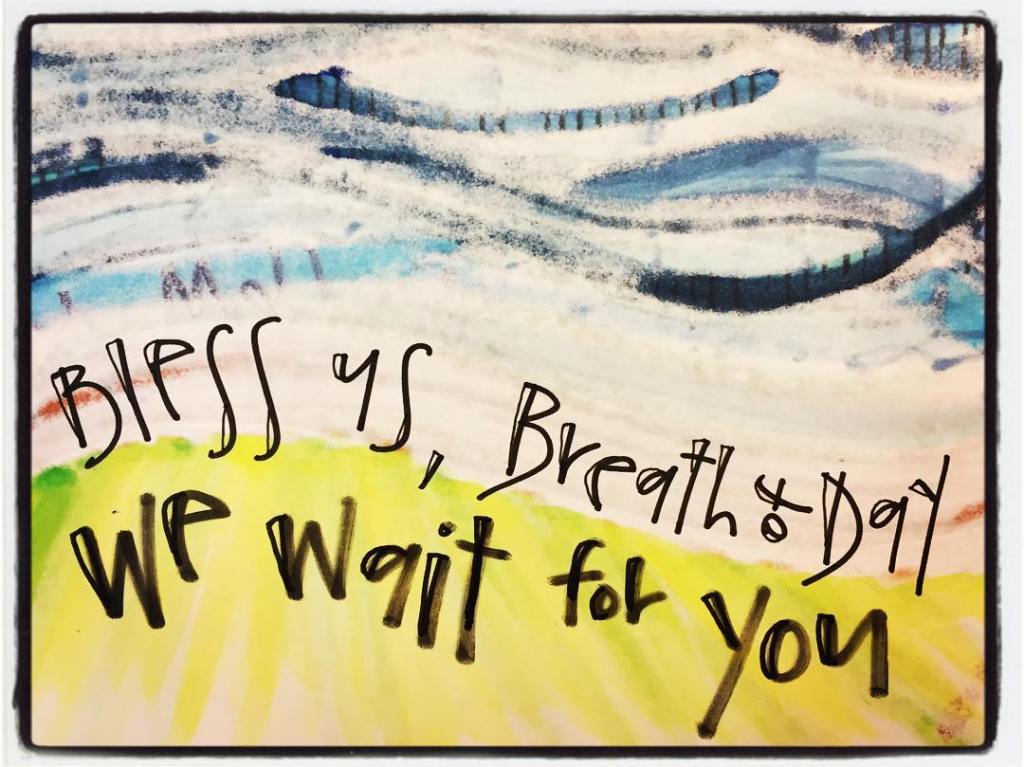 Bless us, Breath & Day
We wait for you